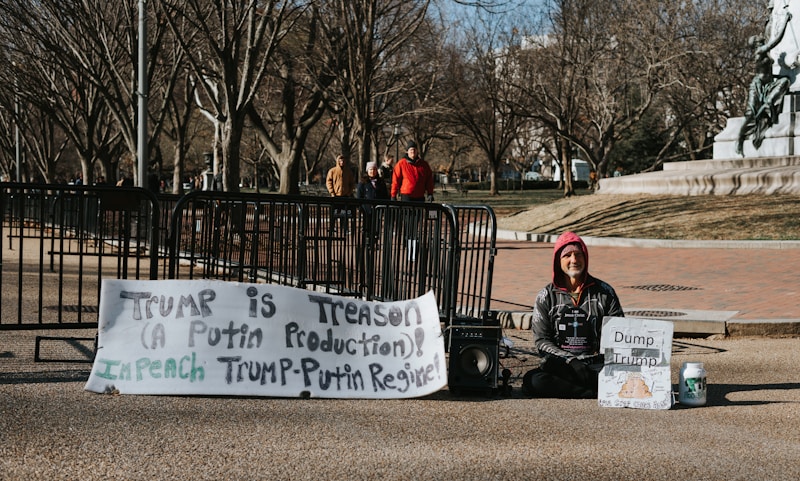 Trump is Treason
(A Putin Production)!
Impeach Trump-Putin Regime!
Dump
Trump